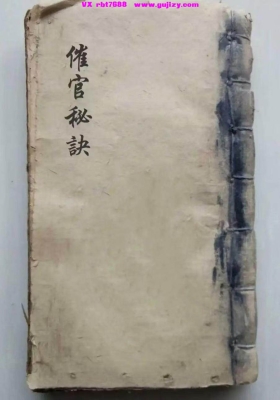 VX rbt7888 www.gujizy.com
催官秘訣